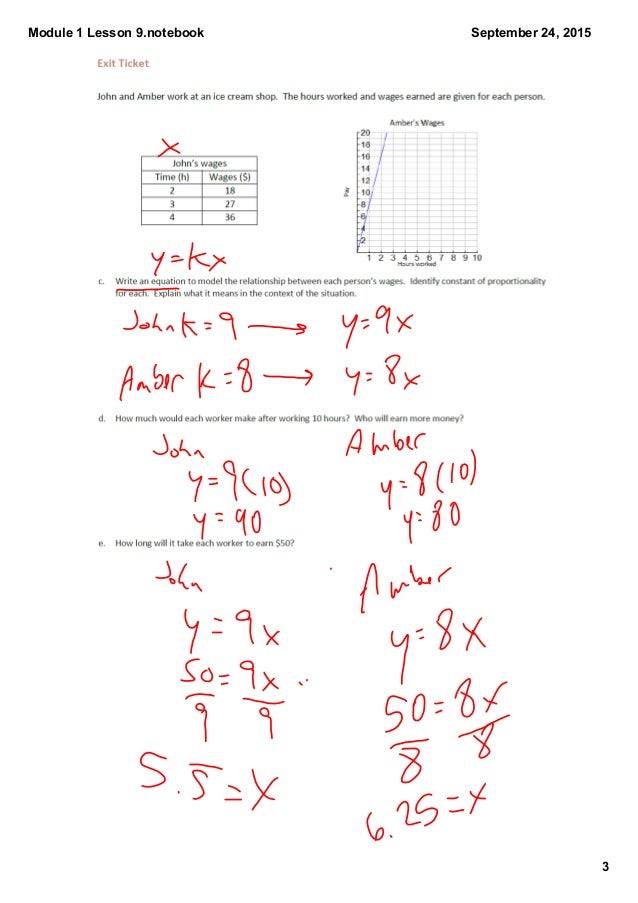 Module 1 Lesson 9.notebook
September 24, 2015
Exit Ticket
John and Amber work at an ice cream shop. The hours worked and wages earned are given for each person.
x
John's wages
Time (h) Wages ($)
2 18
3 27
4 36
Amber's Wages
20
18
16
14
12
10
8
6
4
2
Pay
1 2 3 4 5 6 7 8 9 10
Hours worked
y=kx
c. Write an equation to model the relationship between each person's wages. Identify constant of proportionality
for each. Explain what it means in the context of the situation.
John k=9 → y=9x
Amber k=8 → y=8x
d. How much would each worker make after working 10 hours? Who will earn more money?
John
y=9(10)
y=90
Amber
y=8(10)
y=80
e. How long will it take each worker to earn $50?
John
y=9x
50=9x
9 9
5.5̅=x
Amber
y=8x
50=8x
8 8
6.25=x
3